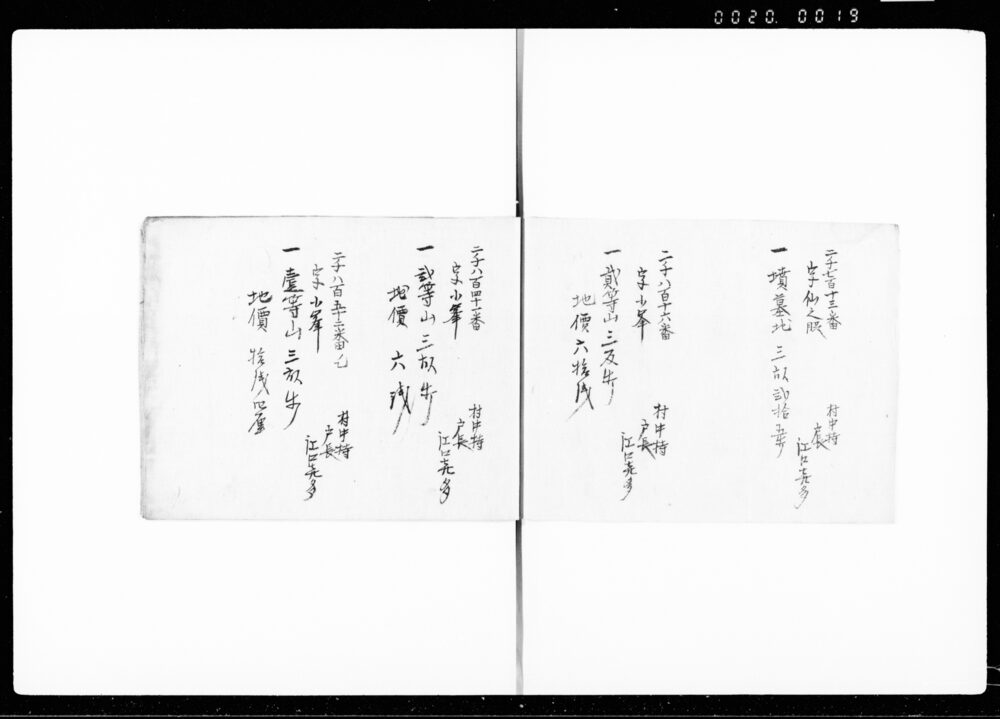 0020. 0019
二千七百十三番
字仙之
一 墳墓地 三畝 貳拾五歩
村中持
戸長
江口㐂多
二千八百十六番
字小峯
一 貳等山 三反歩
地價 六拾銭
村中持
戸長
江口㐂多
二千八百四十一番
字小峯
一 弐等山 三畝歩
地價 六銭
村中持
戸長
江口㐂多
二千八百五十三番乙
字小峯
一 壹等山 三畝歩
地價 拾銭四厘
村中持
戸長
江口㐂多